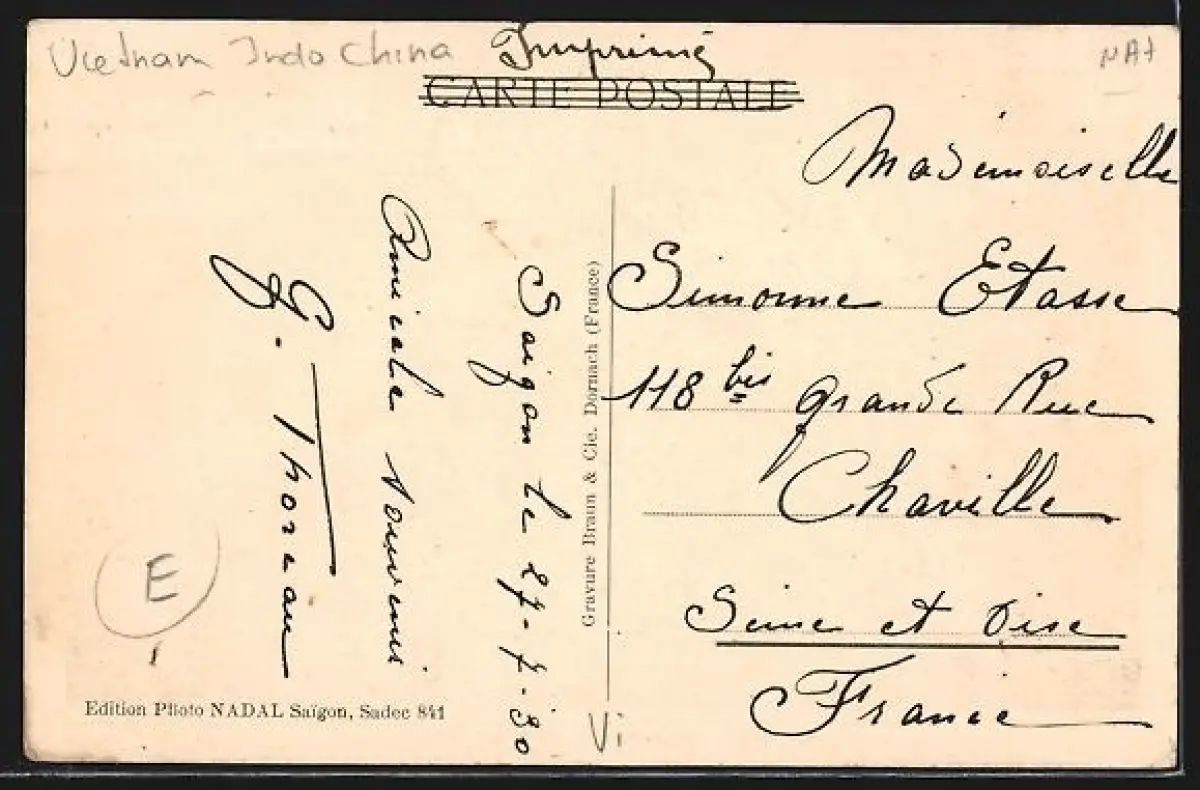 Vietnam Indo China
Imprimé
NAt
CARTE POSTALE
Saigon le 27-7-30
Amicale souvenir
G. Thoreau
E
Edition Photo NADAL Saïgon, Sadec 841
Gravure Braun & Cie. Dornach (France)
Vi
Mademoiselle
Simonne Etasse
118 bis grande Rue
Chaville
Seine et Oise
France